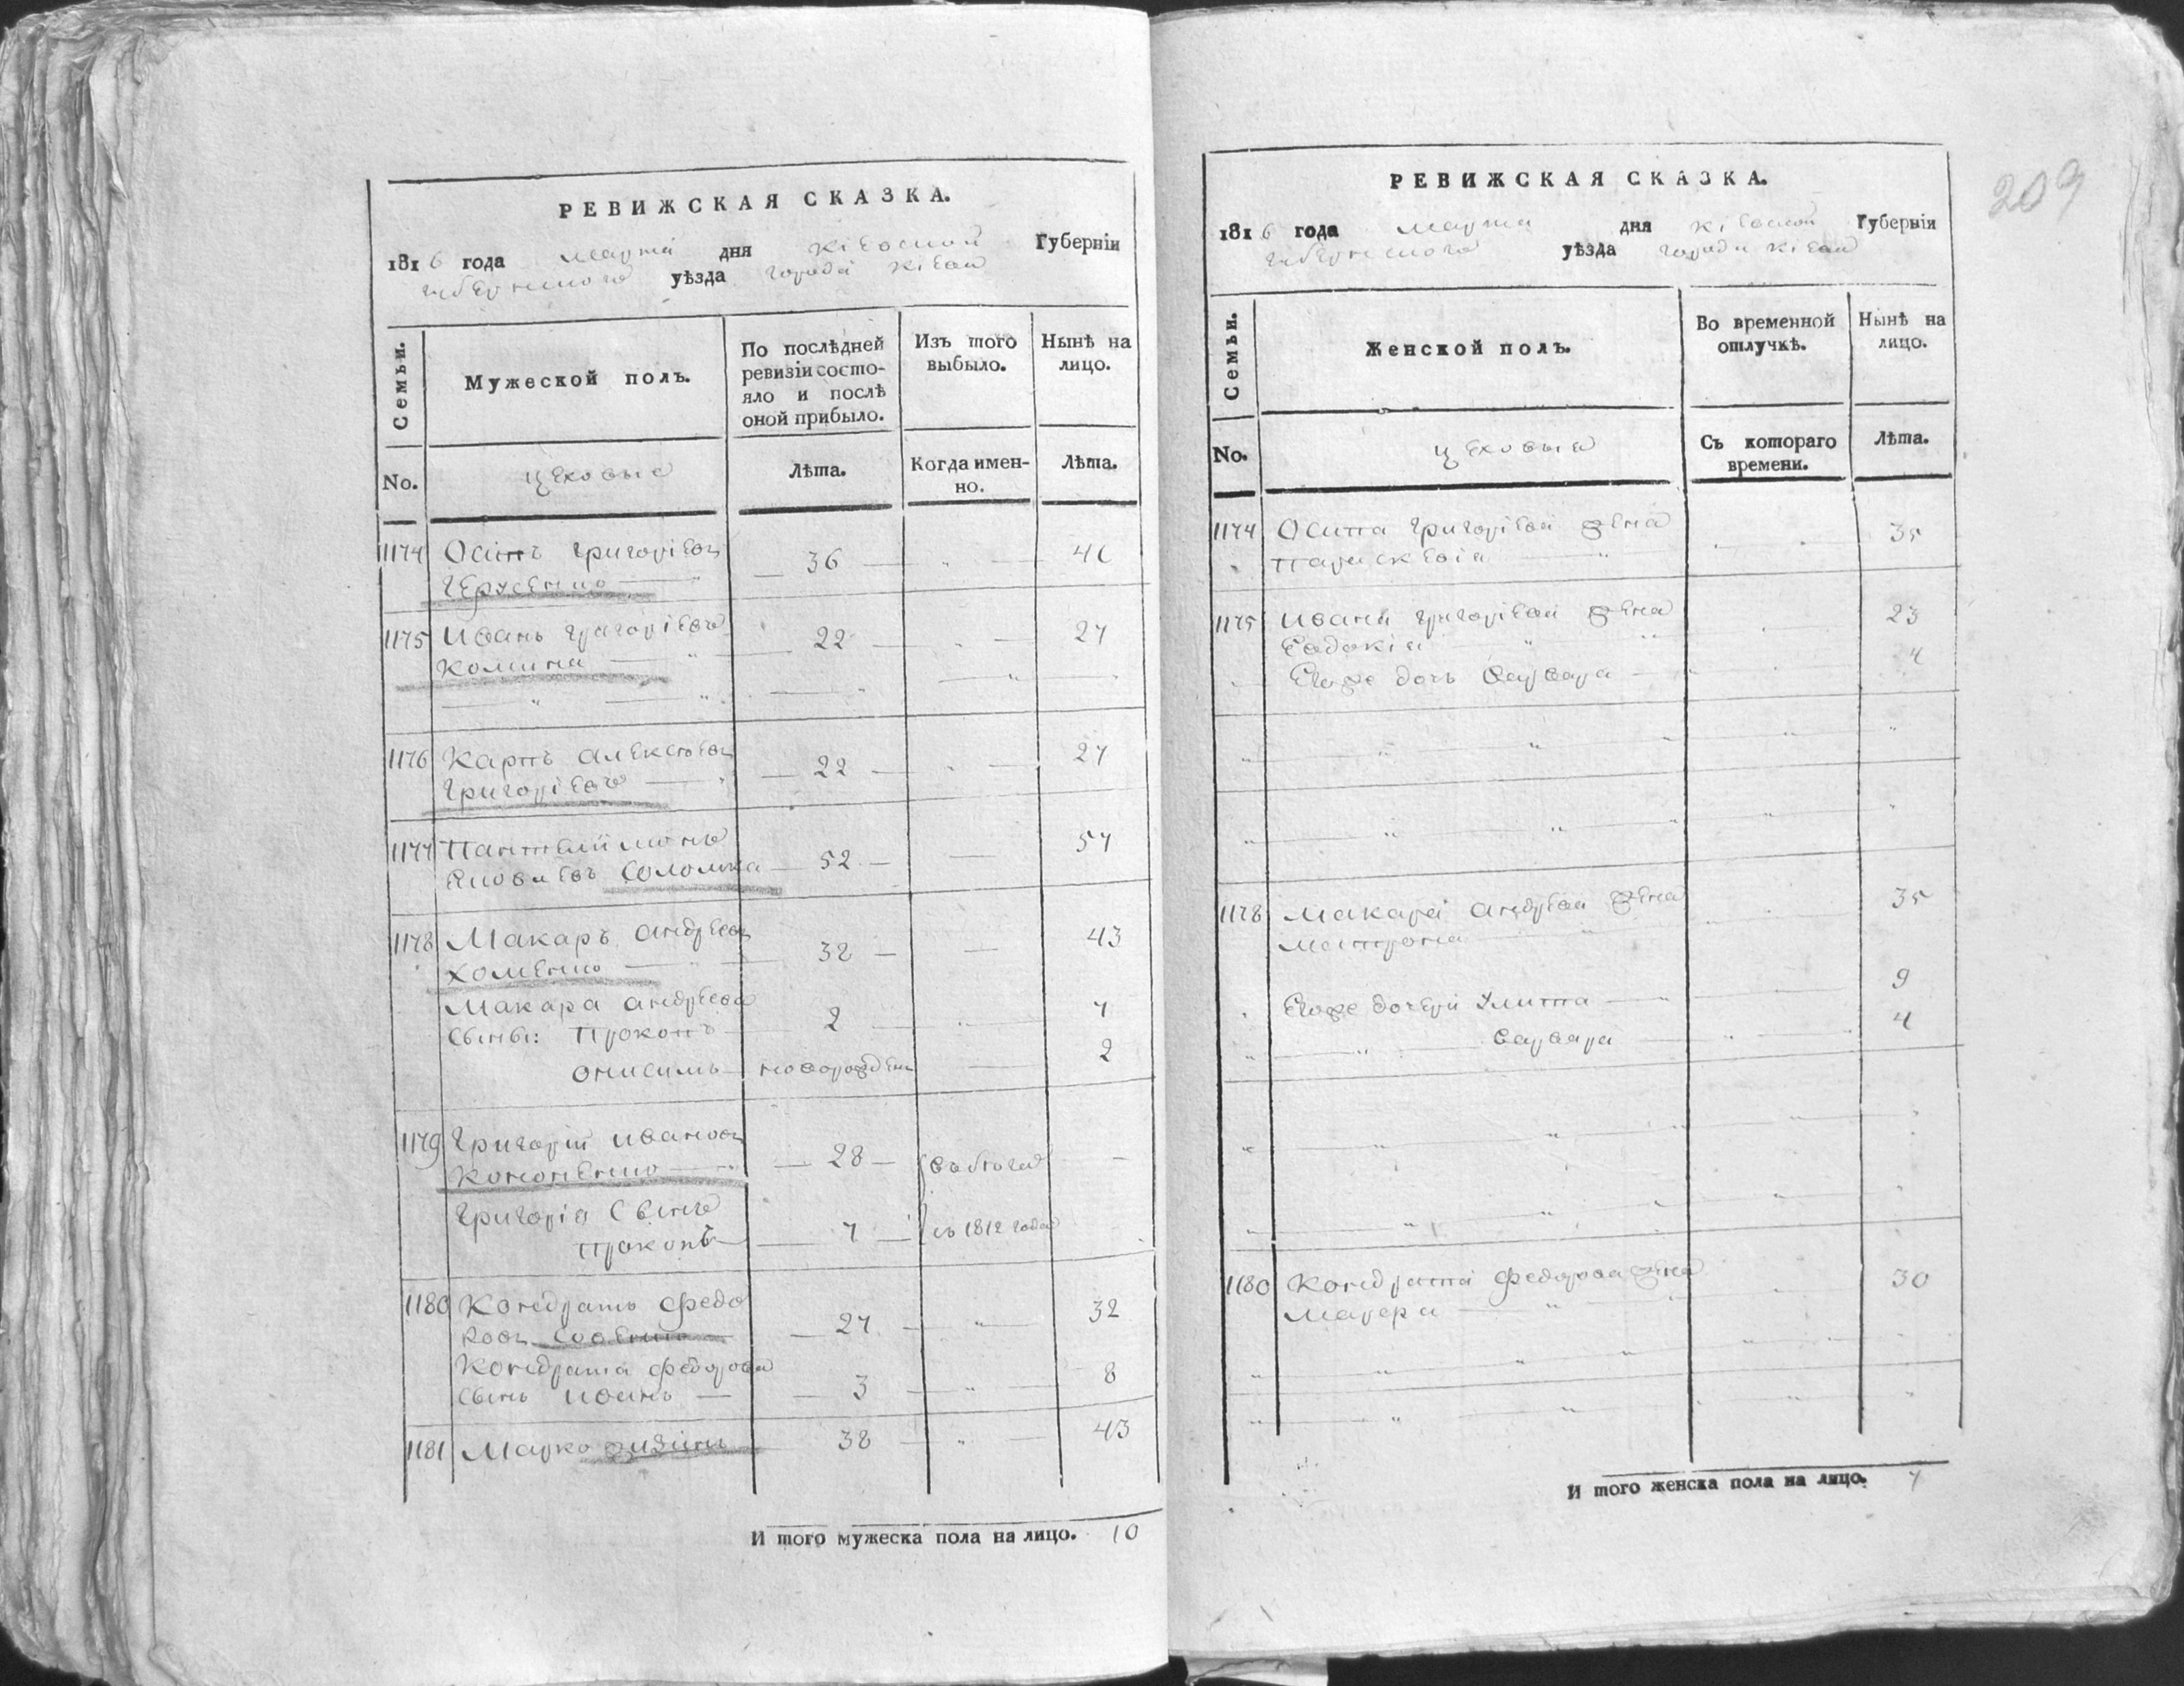 РЕВИЖСКАЯ СКАЗКА.
1816 года марта дня Кіевской Губерніи
губернского уѣзда города Кіева
Семьи.
Мужеской полъ.
По послѣдней ревизіи состо-
яло и послѣ
оной прибыло.
Изъ того
выбыло.
Нынѣ на
лицо.
No.
цеховые
Лѣта.
Когда имен-
но.
Лѣта.
1174 Осипъ Григоріевъ 36
1175 Иванъ Григоріевъ 22 27
1176 Карпъ Алексѣевъ 22 27
Григоріевъ
1177 Пантелиймонъ 52 57
Яковлевъ Соломка
1178 Макаръ Андреевъ 38 43
Хоменко
Макара Андреева
сыны: Прокопъ 2 7
Онисимъ новорожден 2
1179 Григорій Ивановъ 28
Кононенко
Григорія сынъ 7 съ 1812 года
Прокопъ
1180 Кондратъ Федо 27 32
ровъ
Кондрата Федорова
сынъ Иванъ 3 8
1181 Марко 38 43
И того мужеска пола на лицо. 10
209
РЕВИЖСКАЯ СКАЗКА.
1816 года марта дня Кіевской Губерніи
губернского уѣзда города Кіева
Семьи.
Женской полъ.
Во временной
отлучкѣ.
Нынѣ на
лицо.
No.
цеховые
Съ котораго
времени.
Лѣта.
1174 Осипа Григоріева жена 35
Параскевія
1175 Ивана Григоріева жена 23
Евдокія
Егоже дочь Варвара 4
1178 Макара Андреева жена 35
Матрона
Егоже дочери Улита 9
Варвара 4
1180 Кондрата Федорова жена 30
И того женска пола на лицо. 7